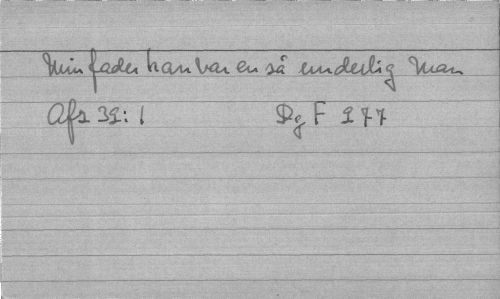 Min fader han var en så underlig man
Afz 39:1 Dg F 277